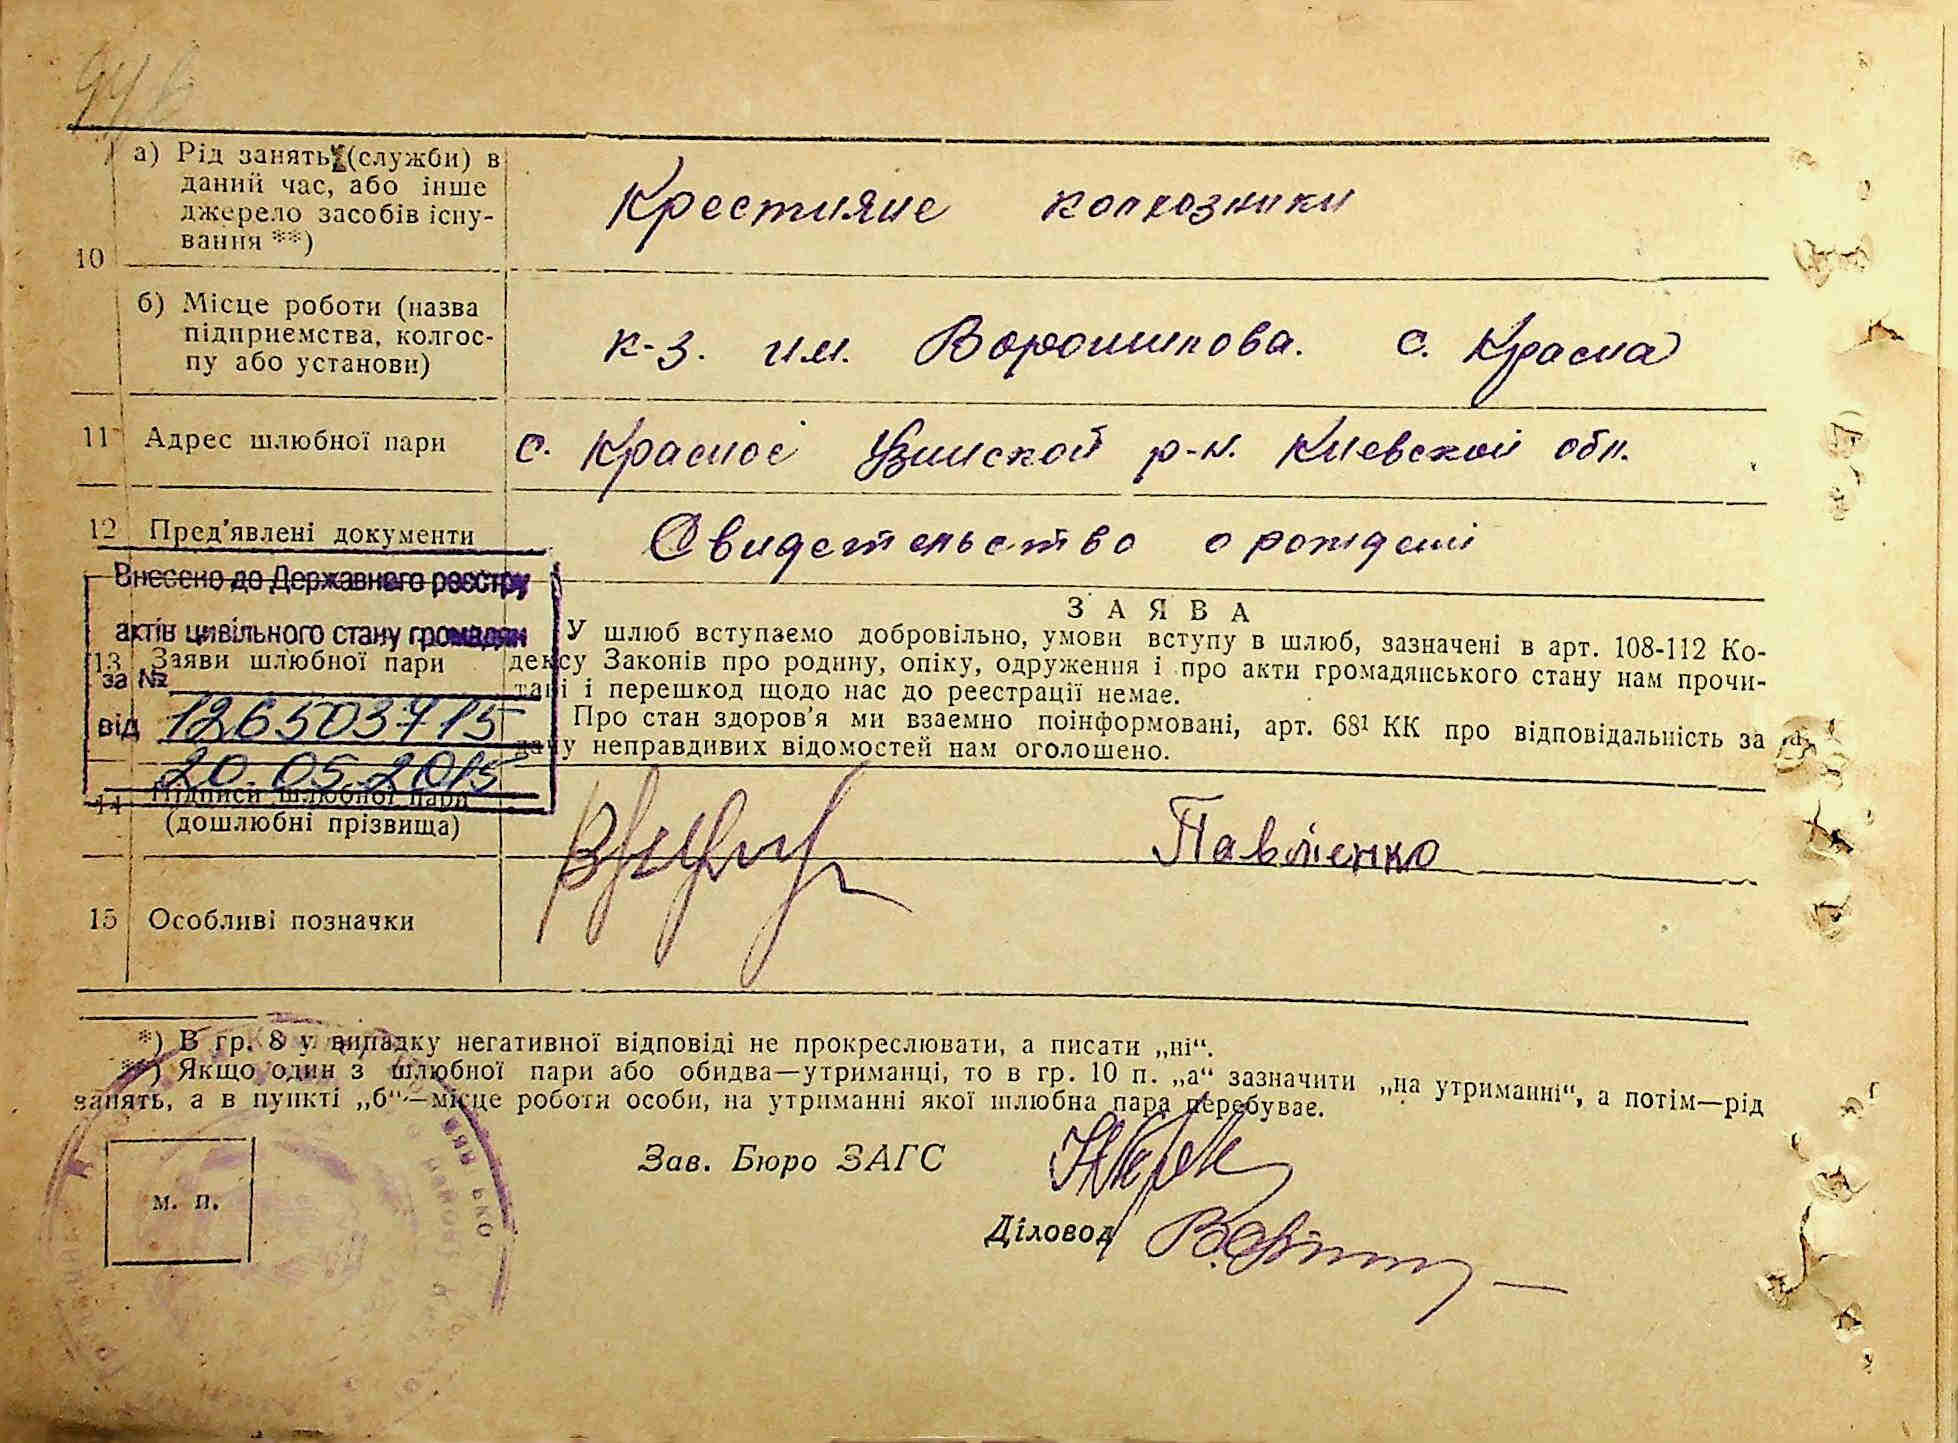 10
а) Рід занять (служби) в
даний час, або інше
джерело засобів існу-
вання **)
Крестияне колхозники
б) Місце роботи (назва
підприємства, колгос-
пу або установи)
к-з. им. Ворошилова. с. Красна
11 Адрес шлюбної пари
с. Красноє Узинской р-н. Киевской обл.
12 Пред'явлені документи
Свидетельство о рождені
Внесено до Державного реєстру
актів цивільного стану громадян
за №
126503715
від
20.05.2015
13 Заяви шлюбної пари
ЗАЯВА
У шлюб вступаємо добровільно, умови вступу в шлюб, зазначені в арт. 108-112 Ко-
дексу Законів про родину, опіку, одруження і про акти громадянського стану нам прочи-
тані і перешкод щодо нас до реєстрації немає.
Про стан здоров'я ми взаємно поінформовані, арт. 68¹ КК про відповідальність за
дачу неправдивих відомостей нам оголошено.
14 Підписи шлюбної пари
(дошлюбні прізвища)
Павленко
15 Особливі позначки
*) В гр. 8 у випадку негативної відповіді не прокреслювати, а писати „ні“.
**) Якщо один з шлюбної пари або обидва—утриманці, то в гр. 10 п. „а“ зазначити „на утриманні“, а потім—рід
занять, а в пункті „б“—місце роботи особи, на утриманні якої шлюбна пара перебуває.
м. п.
Зав. Бюро ЗАГС
Діловод